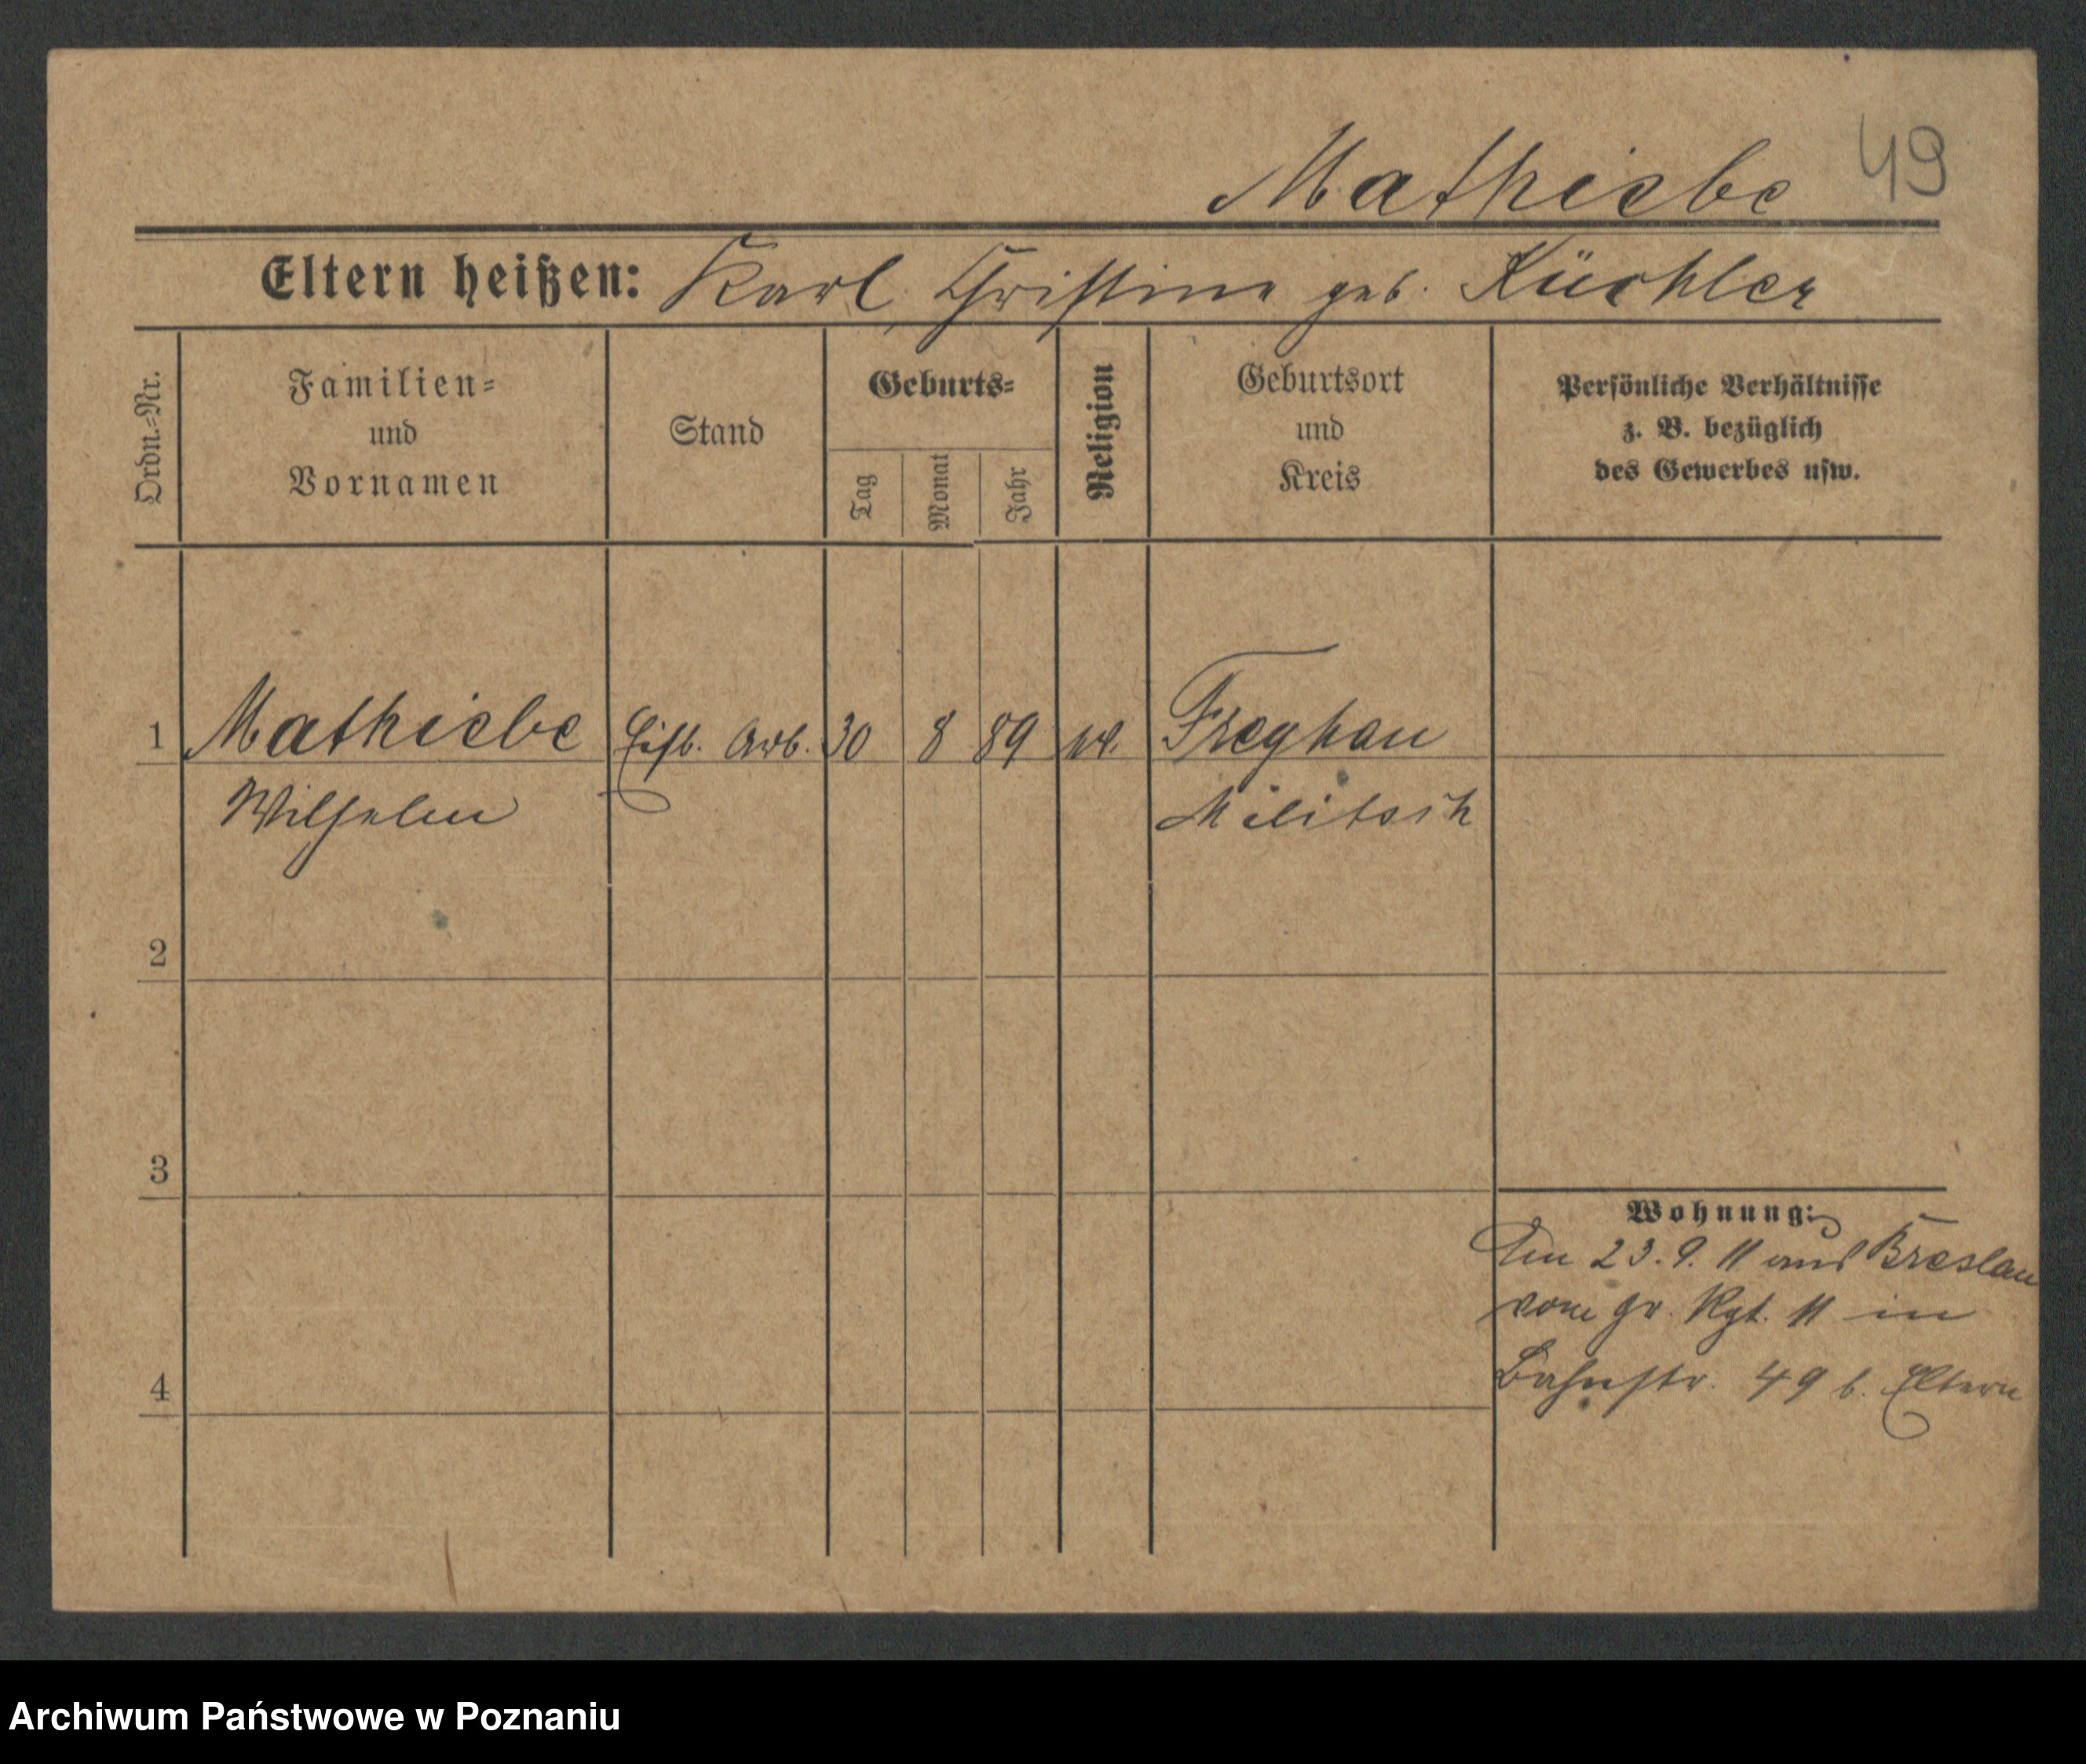 Mathiebe 49
Eltern heißen: Karl, Christine geb. Küchler
Ordn.-Nr.
Familien-
und
Vornamen
Stand
Geburts-
Tag
Monat
Jahr
Religion
Geburtsort
und
Kreis
Persönliche Verhältnisse
z. B. bezüglich
des Gewerbes usw.
1 Mathiebe Eisb. Arb. 30 8 89 Freyhan
Wilhelm Militsch
2
3
Wohnung:
Am 23.9.11 aus Breslau
vom Gr. Rgt. 11 in
Bahnstr. 49 b. Eltern
4
Archiwum Państwowe w Poznaniu